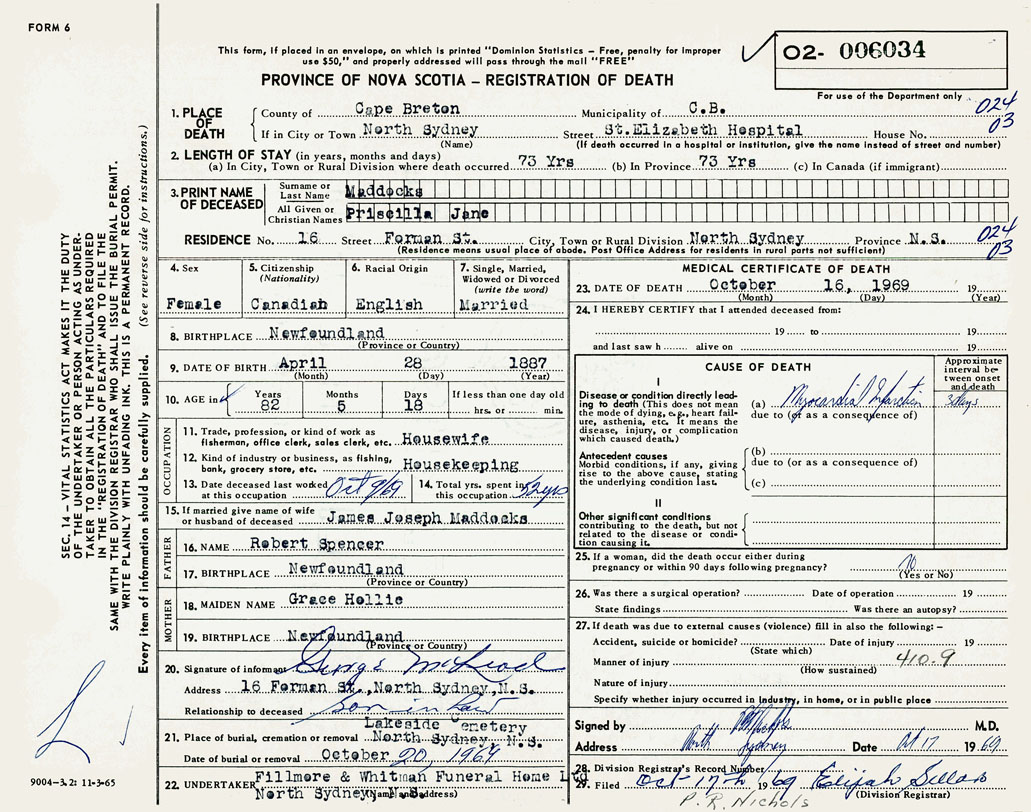 FORM 6
This form, if placed in an envelope, on which is printed "Dominion Statistics – Free, penalty for improper
use $50," and properly addressed will pass through the mail "FREE"
02- 006034
PROVINCE OF NOVA SCOTIA – REGISTRATION OF DEATH
For use of the Department only
024
03
1. PLACE OF DEATH County of Cape Breton Municipality of C.B.
If in City or Town North Sydney Street St.Elizabeth Hospital House No.
(Name) (If death occurred in a hospital or institution, give the name instead of street and number)
2. LENGTH OF STAY (in years, months and days)
(a) In City, Town or Rural Division where death occurred 73 Yrs (b) In Province 73 Yrs (c) In Canada (if immigrant)
3. PRINT NAME OF DECEASED Surname or Last Name Maddocks
All Given or Christian Names Priscilla Jane
024
03
RESIDENCE No. 16 Street Forman St. City, Town or Rural Division North Sydney Province N.S.
(Residence means usual place of abode. Post Office Address for residents in rural parts not sufficient)
4. Sex
Female
5. Citizenship
(Nationality)
Canadian
6. Racial Origin
English
7. Single, Married,
Widowed or Divorced
(write the word)
Married
8. BIRTHPLACE Newfoundland
(Province or Country)
9. DATE OF BIRTH April 28 1887
(Month) (Day) (Year)
10. AGE in Years 82 Months 5 Days 18 If less than one day old
hrs. or min.
OCCUPATION
11. Trade, profession, or kind of work as
fisherman, office clerk, sales clerk, etc. Housewife
12. Kind of industry or business, as fishing,
bank, grocery store, etc. Housekeeping
13. Date deceased last worked
at this occupation Oct 9/69
14. Total yrs. spent in
this occupation 52 yrs
15. If married give name of wife
or husband of deceased James Joseph Maddocks
FATHER
16. NAME Robert Spencer
17. BIRTHPLACE Newfoundland
(Province or Country)
MOTHER
18. MAIDEN NAME Grace Hollie
19. BIRTHPLACE Newfoundland
(Province or Country)
20. Signature of informant George McLeod
Address 16 Forman St., North Sydney, N.S.
Relationship to deceased Son in Law
21. Place of burial, cremation or removal Lakeside Cemetery
North Sydney, N.S.
Date of burial or removal October 20, 1969
22. UNDERTAKER Fillmore & Whitman Funeral Home Ltd
North Sydney, N.S.
(Name and address)
MEDICAL CERTIFICATE OF DEATH
23. DATE OF DEATH October 16, 1969 19
(Month) (Day) (Year)
24. I HEREBY CERTIFY that I attended deceased from:
19 to 19
and last saw h alive on 19
CAUSE OF DEATH
Approximate
interval be-
tween onset
and death
I
Disease or condition directly lead-
ing to death (This does not mean
the mode of dying, e.g., heart fail-
ure, asthenia, etc. It means the
disease, injury, or complication
which caused death.)
(a) Myocardial Infarction 3 days
due to (or as a consequence of)
Antecedent causes
Morbid conditions, if any, giving
rise to the above cause, stating
the underlying condition last.
(b)
due to (or as a consequence of)
(c)
II
Other significant conditions
contributing to the death, but not
related to the disease or condi-
tion causing it.
25. If a woman, did the death occur either during
pregnancy or within 90 days following pregnancy? no
(Yes or No)
26. Was there a surgical operation? Date of operation 19
State findings Was there an autopsy?
27. If death was due to external causes (violence) fill in also the following: –
Accident, suicide or homicide? Date of injury 19
(State which)
Manner of injury 410.9
(How sustained)
Nature of injury
Specify whether injury occurred in industry, in home, or in public place
Signed by M.D.
Address North Sydney Date Oct 17 1969
28. Division Registrar's Record Number
29. Filed Oct 17th 1969 Elijah Sellars
(Division Registrar)
P. R. Nichols
SEC. 14 – VITAL STATISTICS ACT MAKES IT THE DUTY
OF THE UNDERTAKER OR PERSON ACTING AS UNDER-
TAKER TO OBTAIN ALL THE PARTICULARS REQUIRED
IN THE "REGISTRATION OF DEATH" AND TO FILE THE
SAME WITH THE DIVISION REGISTRAR WHO SHALL ISSUE THE BURIAL PERMIT.
WRITE PLAINLY WITH UNFADING INK. THIS IS A PERMANENT RECORD.
Every item of information should be carefully supplied. (See reverse side for instructions.)
9004–3.2: 11-3-65